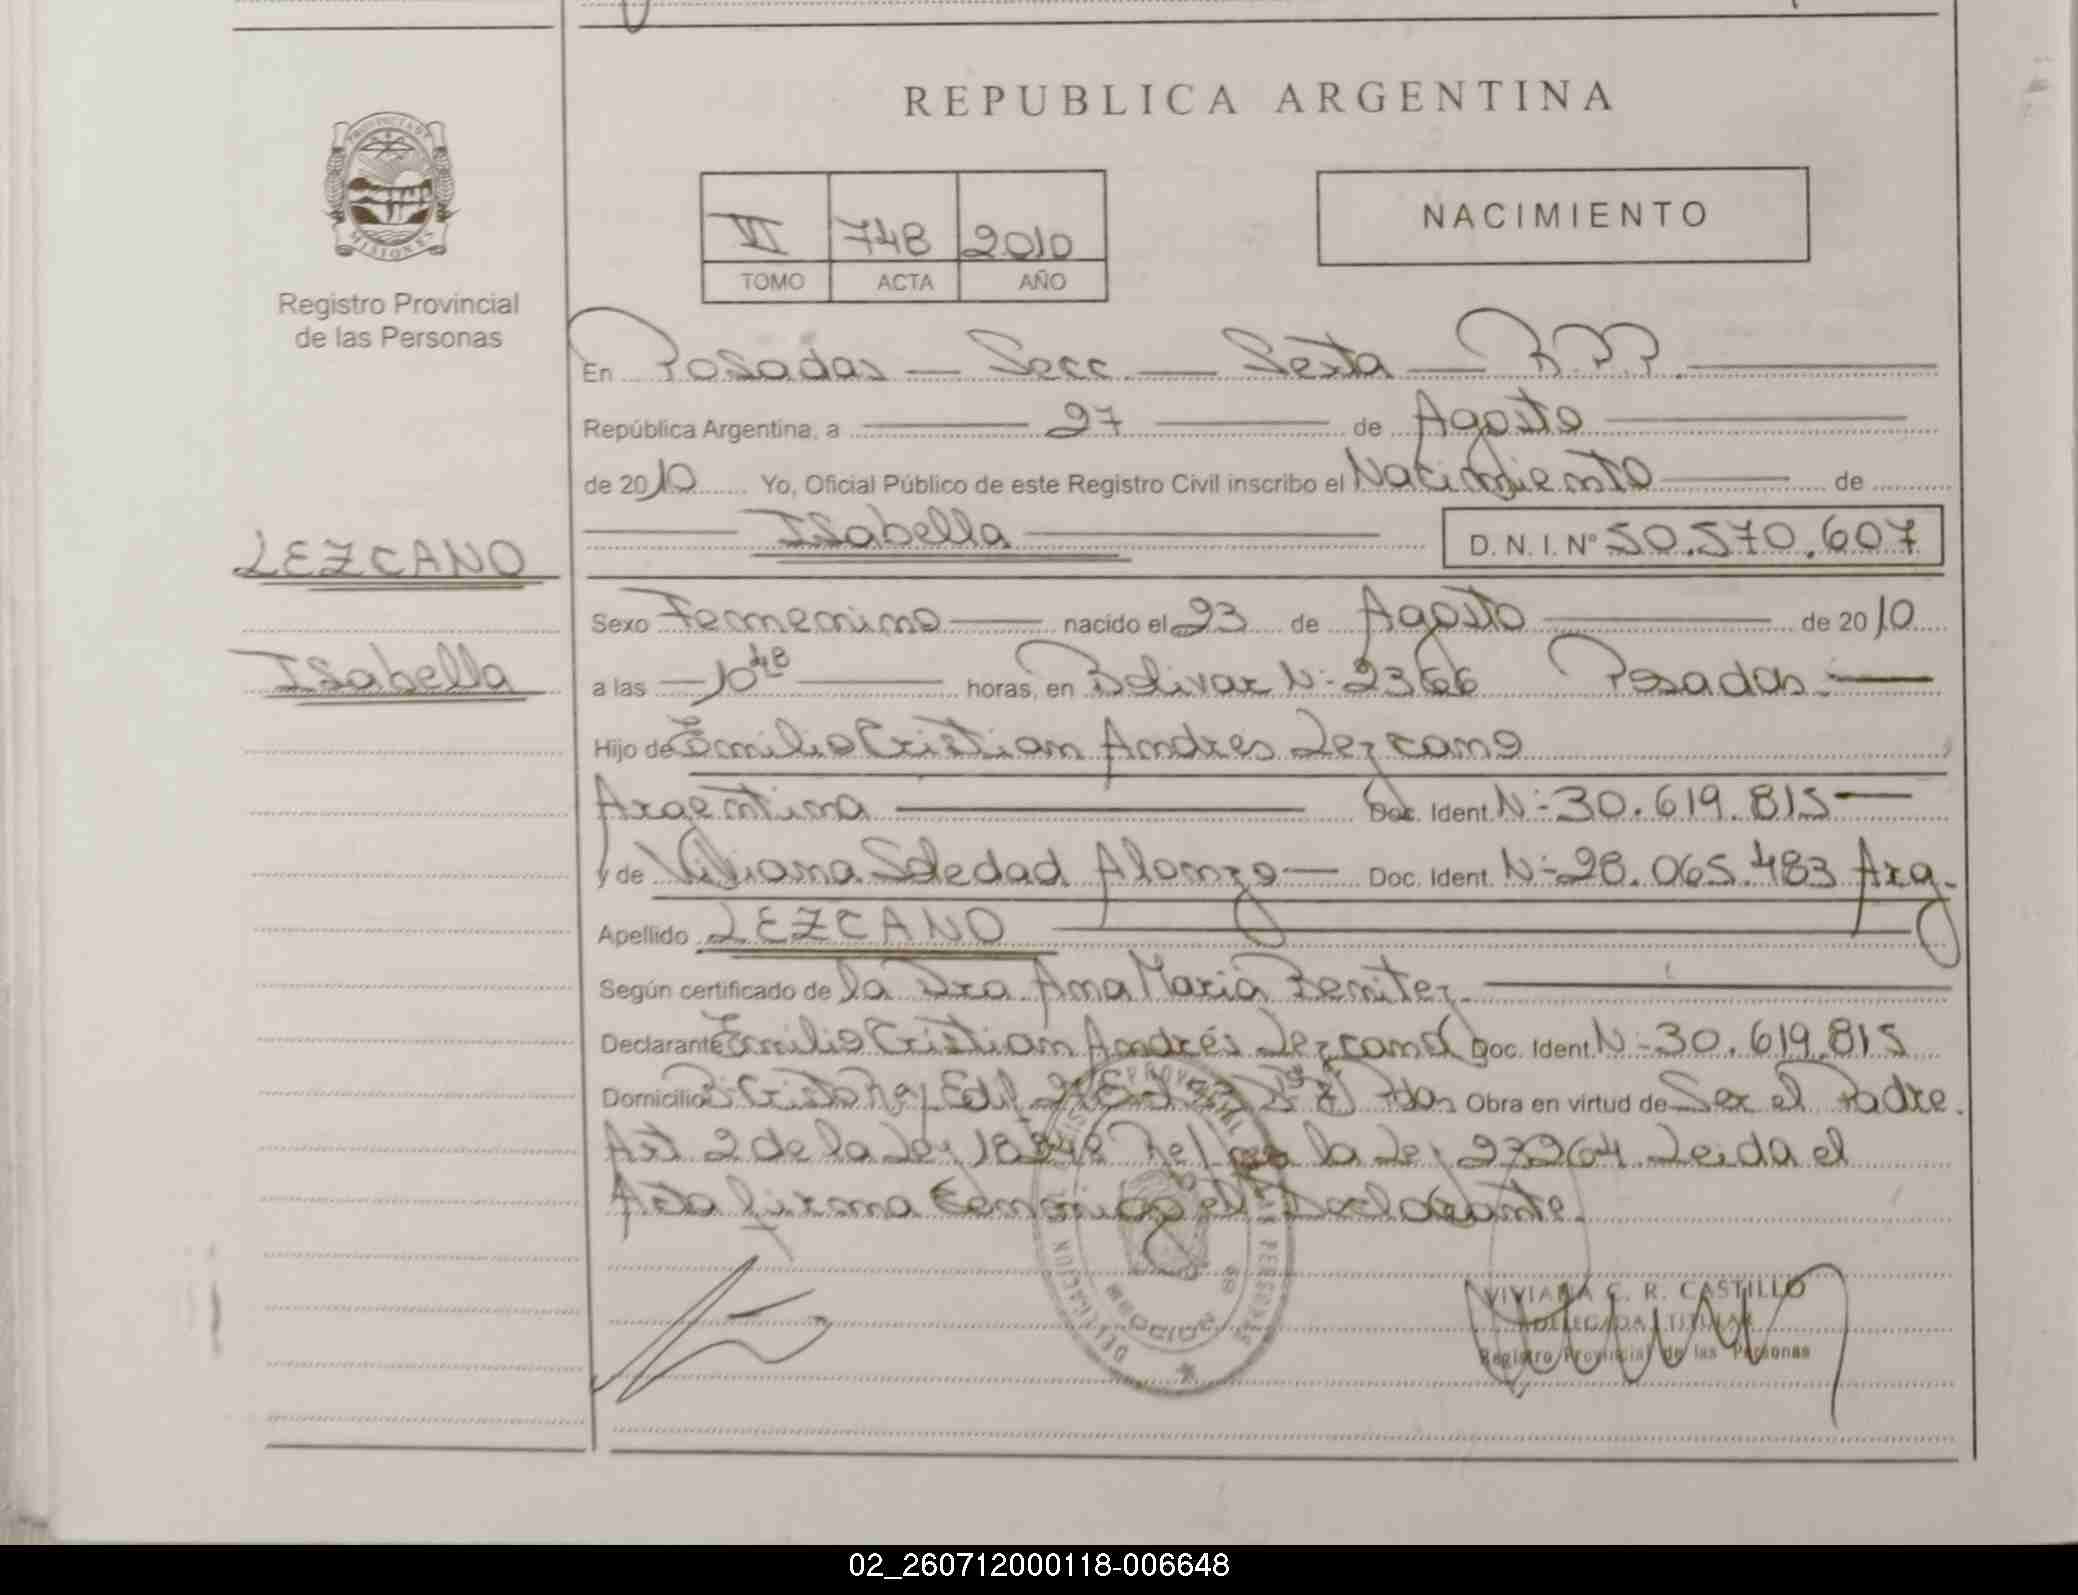 REPUBLICA ARGENTINA
PROVINCIA DE
MISIONES
Registro Provincial
de las Personas
VI 748 2010
TOMO ACTA AÑO
NACIMIENTO
En Posadas — Secc — Sexta — R.P.P.
República Argentina, a 27 de Agosto
de 2010 Yo, Oficial Público de este Registro Civil inscribo el Nacimiento de
Isabella D. N. I. Nº 50.570.607
LEZCANO
Isabella
Sexo Femenino nacido el 23 de Agosto de 2010
a las 10 48 horas, en Bolivar Nº 2366 Posadas.
Hijo de Emilio Cristian Andres Lezcano
Argentina Doc. Ident. Nº 30.619.815
y de Viviana Soledad Alonzo Doc. Ident. Nº 28.065.483 Arg.
Apellido LEZCANO
Según certificado de la Dra Ana Maria Benitez.
Declarante Emilio Cristian Andrés Lezcano Doc. Ident. Nº 30.619.815
Domicilio Bº Cristo Rey Edif Pdas Obra en virtud de Ser el Padre.
Art 2 de la Ley 18248 la Ley 23264. Leida el
Acta firma conmigo el Declarante.
VIVIANA C. R. CASTILLO
DELEGADA TITULAR
Registro Provincial de las Personas
02_260712000118-006648